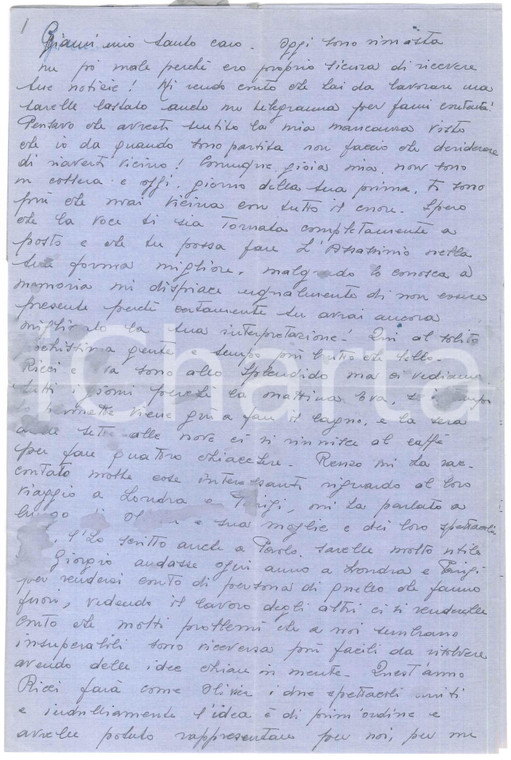 1
Gianni mio tanto caro. Oggi sono rimasta
un pò male perchè ero proprio sicura di ricevere
tue notizie! Mi rendo conto che hai da lavorare ma
sarebbe bastato anche un telegramma per farmi contenta!
Pensavo che avresti sentito la mia mancanza visto
che io da quando sono partita non faccio che desiderare
di riaverti vicino! Comunque gioia mia non sono
in collera e oggi, giorno della tua prima, ti sono
più che mai vicina con tutto il cuore. Spero
che la voce ti sia tornata completamente a
posto e che tu possa fare l'Assassinio nella
tua forma migliore, malgrado lo conosca a
memoria mi dispiace ugualmente di non essere
presente perchè certamente tu avrai ancora
migliorato la tua interpretazione! Qui al solito
pochissima gente, tempo più brutto che bello.
Ricci e Eva sono allo Splendido ma ci vediamo
tutti i giorni perchè la mattina Eva, se il tempo
lo permette viene giù a fare il bagno, e la sera
tutti alle nove ci si riunisce al caffè
per fare quattro chiacchere. Renzo mi ha rac-
contato molte cose interessanti riguardo al loro
viaggio a Londra e Parigi, mi ha parlato a
lungo di e sua moglie e dei loro spettacoli
L'ho scritto anche a Paolo, sarebbe molto utile
Giorgio andasse ogni anno a Londra e Parigi
per rendersi conto di persona di quello che fanno
fuori, vedendo il lavoro degli altri ci si renderebbe
conto che molti problemi che a noi sembrano
insuperabili sono viceversa più facili da risolvere
avendo delle idee chiare in mente. Quest'anno
Ricci farà come Olivier i due spettacoli uniti
e indubbiamente l'idea è di prim'ordine e
avrebbe potuto rappresentare per noi, per un
iCharta